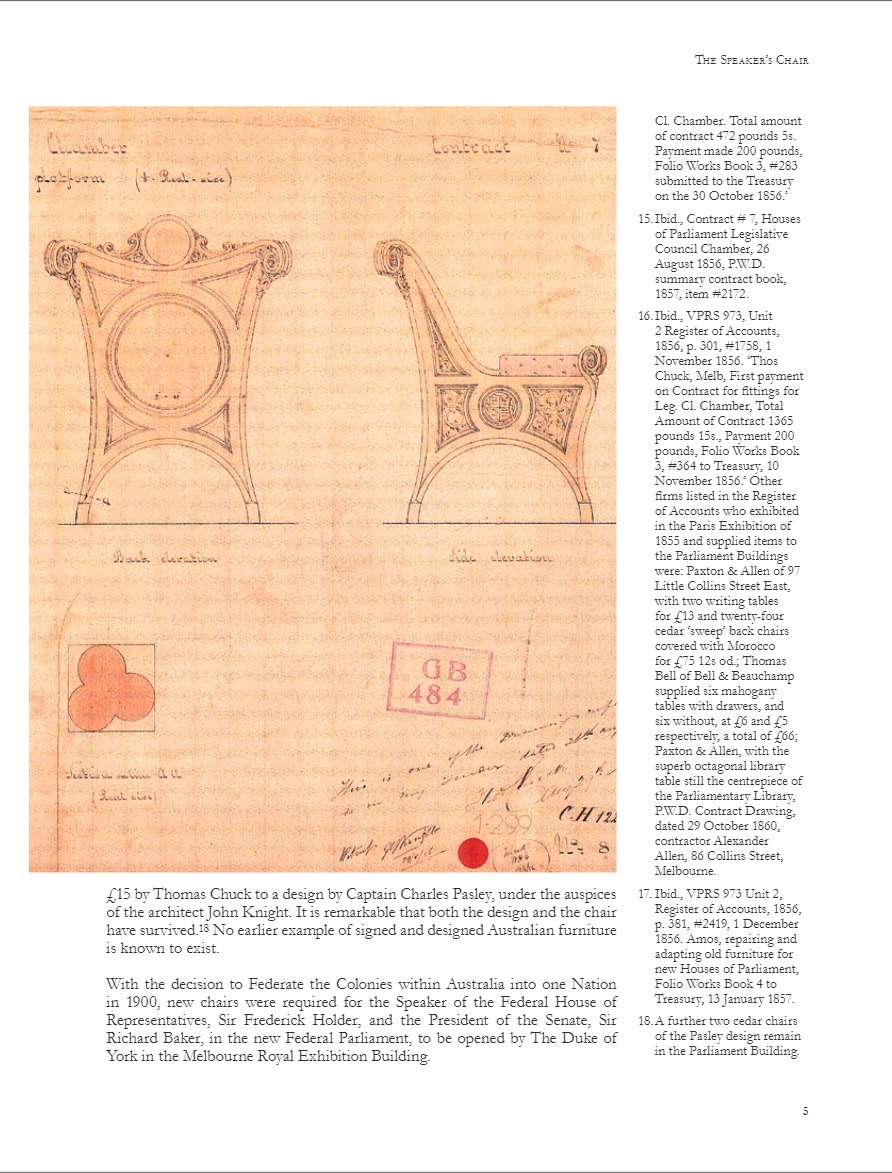 THE SPEAKER'S CHAIR
Chamber
Contract No 7
platform
Real-size)
Back elevation
Side elevation
GB
484
This is one of the drawings
to in my Tender dated 28th
(Real size)
C.H 122
1-299
No. 8
£15 by Thomas Chuck to a design by Captain Charles Pasley, under the auspices
of the architect John Knight. It is remarkable that both the design and the chair
have survived.18 No earlier example of signed and designed Australian furniture
is known to exist.
With the decision to Federate the Colonies within Australia into one Nation
in 1900, new chairs were required for the Speaker of the Federal House of
Representatives, Sir Frederick Holder, and the President of the Senate, Sir
Richard Baker, in the new Federal Parliament, to be opened by The Duke of
York in the Melbourne Royal Exhibition Building.
Cl. Chamber. Total amount
of contract 472 pounds 5s.
Payment made 200 pounds,
Folio Works Book 3, #283
submitted to the Treasury
on the 30 October 1856.'
15. Ibid., Contract # 7, Houses
of Parliament Legislative
Council Chamber, 26
August 1856, P.W.D.
summary contract book,
1857, item #2172.
16. Ibid., VPRS 973, Unit
2 Register of Accounts,
1856, p. 301, #1758, 1
November 1856. 'Thos
Chuck, Melb, First payment
on Contract for fittings for
Leg. Cl. Chamber, Total
Amount of Contract 1365
pounds 15s., Payment 200
pounds, Folio Works Book
3, #364 to Treasury, 10
November 1856.' Other
firms listed in the Register
of Accounts who exhibited
in the Paris Exhibition of
1855 and supplied items to
the Parliament Buildings
were: Paxton & Allen of 97
Little Collins Street East,
with two writing tables
for £13 and twenty-four
cedar 'sweep' back chairs
covered with Morocco
for £75 12s od.; Thomas
Bell of Bell & Beauchamp
supplied six mahogany
tables with drawers, and
six without, at £6 and £5
respectively, a total of £66;
Paxton & Allen, with the
superb octagonal library
table still the centrepiece of
the Parliamentary Library,
P.W.D. Contract Drawing,
dated 29 October 1860,
contractor Alexander
Allen, 86 Collins Street,
Melbourne.
17. Ibid., VPRS 973 Unit 2,
Register of Accounts, 1856,
p. 381, #2419, 1 December
1856. Amos, repairing and
adapting old furniture for
new Houses of Parliament,
Folio Works Book 4 to
Treasury, 13 January 1857.
18. A further two cedar chairs
of the Pasley design remain
in the Parliament Building.
5